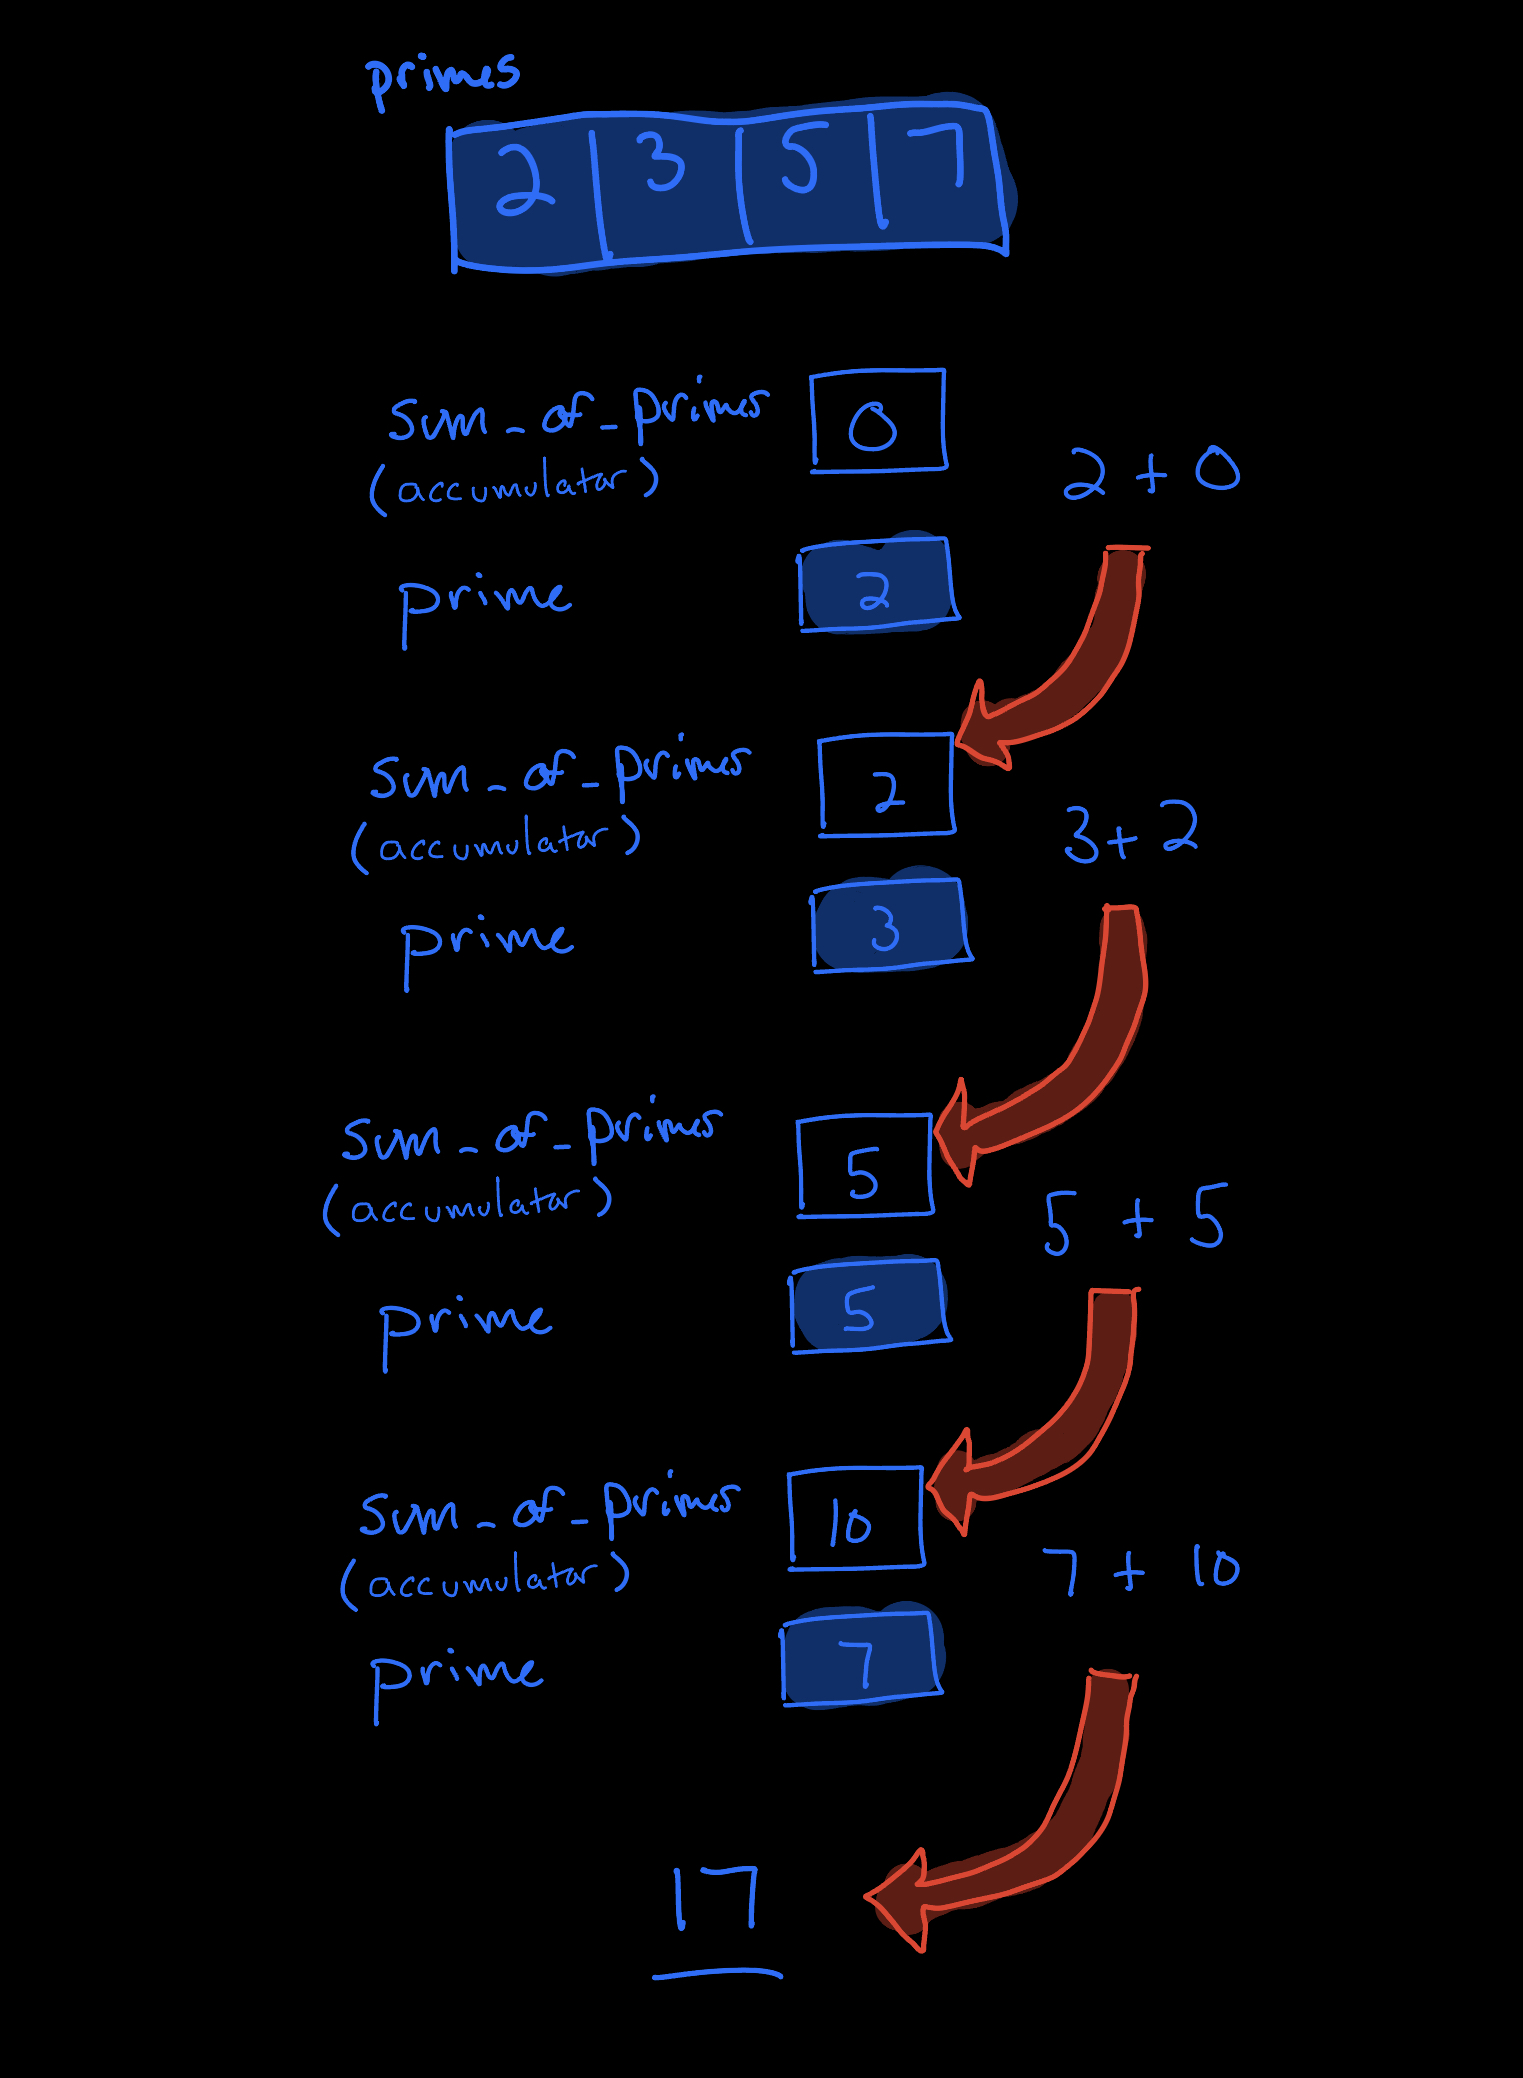 primes
2 3 5 7
sum_of_primes 0
(accumulator) 2 + 0
prime 2
sum_of_primes 2
(accumulator) 3 + 2
prime 3
sum_of_primes 5
(accumulator) 5 + 5
prime 5
sum_of_primes 10
(accumulator) 7 + 10
prime 7
17